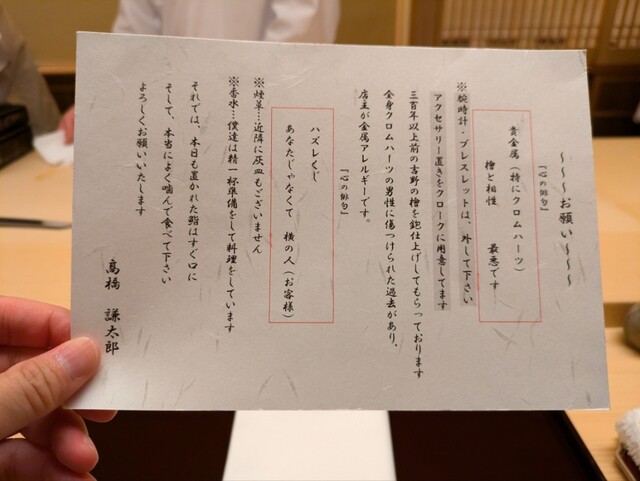 ～～～お願い～～～
『心の俳句』
貴金属（特にクロムハーツ）
檜と相性　最悪です
※腕時計・ブレスレットは、外して下さい
アクセサリー置きをクロークに用意してます
三百年以上前の吉野の檜を鉋仕上げしてもらっております
全身クロムハーツの男性に傷つけられた過去があり、
店主が金属アレルギーです。
『心の俳句』
ハズレくじ
あなたじゃなくて　横の人（お客様）
※煙草…近隣に灰皿もございません
※香水…僕達は精一杯準備をして料理をしています
それでは、本日も置かれた鮨はすぐ口に
そして、本当によく噛んで食べて下さい
よろしくお願いいたします
高橋　謙太郎